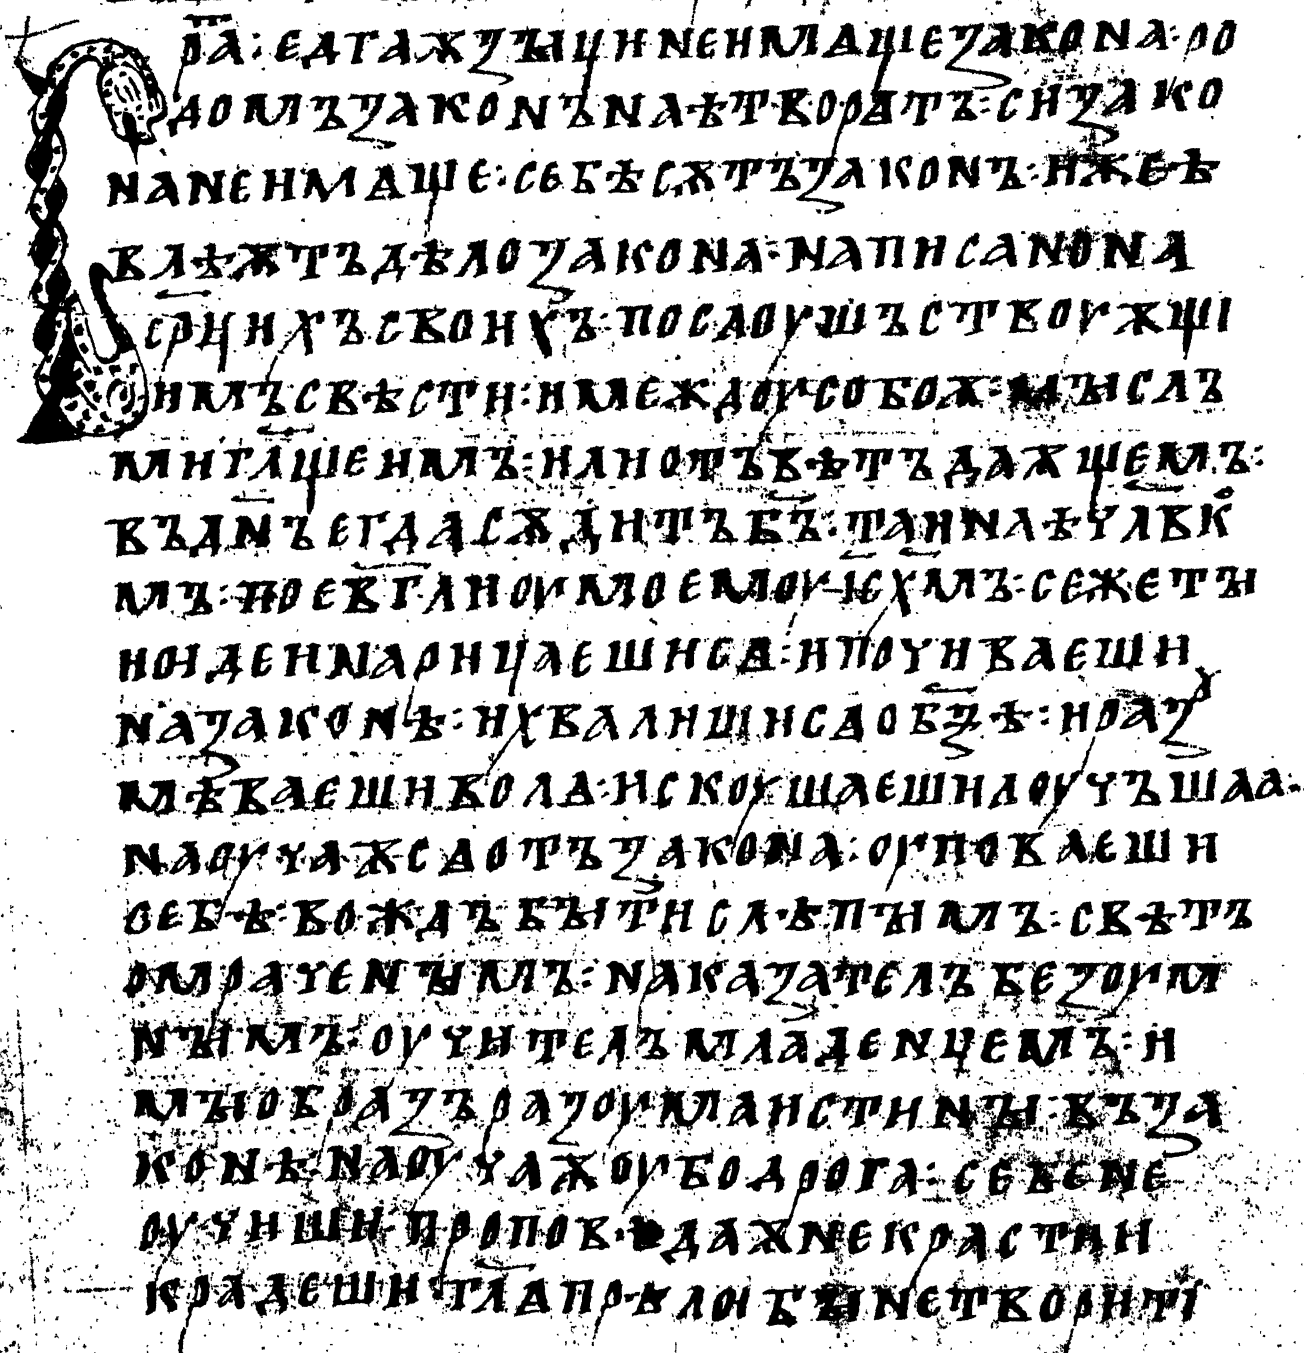 р҃а: едгаѫꙁꙑци неимѧще закона· ро
домъ законъ наѣ творѧтъ: си ꙁако
на не имѧще: себѣ сѫтъ ꙁаконъ: иже ѣ
влѣѫтъ дѣло ꙁакона· написано на
срц҃ихъ своихъ: послоушъствоуѫщі
имъ свѣсти: и междоу собоѫ: мꙑслъ
ми гл҃ѧщеимъ: или отъвѣтъ даѫщемъ:
въ дн҃ъ егда сѫдитъ бъ҃: таина лѣчлвк
мъ: по ев҃глиоу моемоу іс҃ хмъ: се же тꙑ
июдеи нарицаеши сѧ: и почиваеши
на ꙁаконѣ: и хвалиши сѧ о бꙁ҃ѣ: и раꙁ
мѣваеши волѧ: искоушаеши лоучъшаа·
наоучаѫ сѧ отъ ꙁакона: оуповаеши
себѣ вождъ бꙑти слѣпꙑмъ: свѣтъ
омраченꙑмъ: накаꙁателъ беꙁоум
нꙑмъ: оучителъ младенцемъ: и
мꙑ обраꙁъ раꙁоума истинꙑ: въ ꙁа
конѣ: наоучаѫ оубо дрога: себе не
оучиши· проповѣдаѫ не красти и
крадеши· гл҃ѧ прѣлюбꙑ не творити